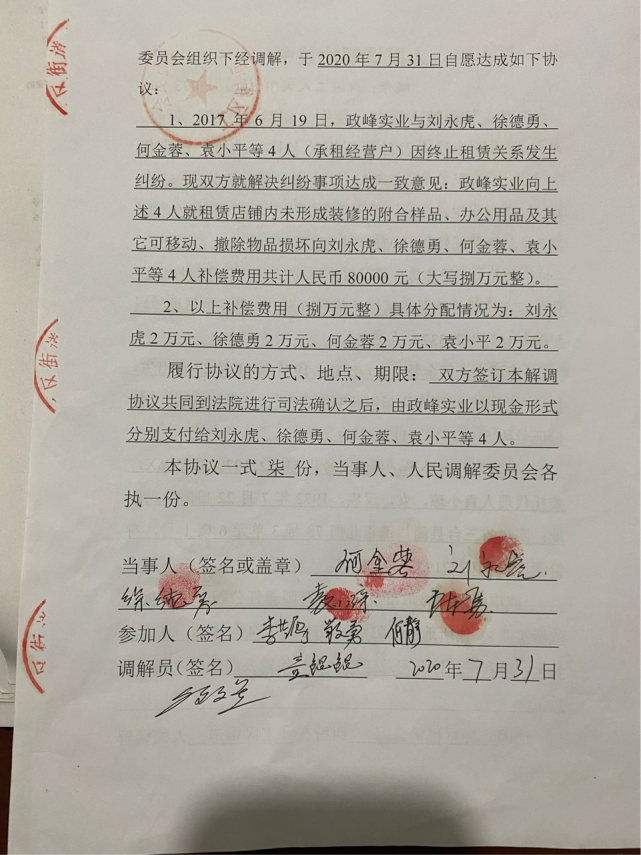 委员会组织下经调解，于 2020 年 7 月 31 日自愿达成如下协
议：
1、2017 年 6 月 19 日，政峰实业与刘永虎、徐德勇、
何金蓉、袁小平等 4 人（承租经营户）因终止租赁关系发生
纠纷。现双方就解决纠纷事项达成一致意见：政峰实业向上
述 4 人就租赁店铺内未形成装修的附合样品、办公用品及其
它可移动、撤除物品损坏向刘永虎、徐德勇、何金蓉、袁小
平等 4 人补偿费用共计人民币 80000 元（大写捌万元整）。
2、以上补偿费用（捌万元整）具体分配情况为：刘永
虎 2 万元、徐德勇 2 万元、何金蓉 2 万元、袁小平 2 万元。
履行协议的方式、地点、期限： 双方签订本解调
协议共同到法院进行司法确认之后，由政峰实业以现金形式
分别支付给刘永虎、徐德勇、何金蓉、袁小平等 4 人。
本协议一式 柒 份，当事人、人民调解委员会各
执一份。
当事人（签名或盖章） 何金蓉 刘永虎
徐德勇
参加人（签名） 敬勇 何静
调解员（签名） 2020 年 7 月 31 日